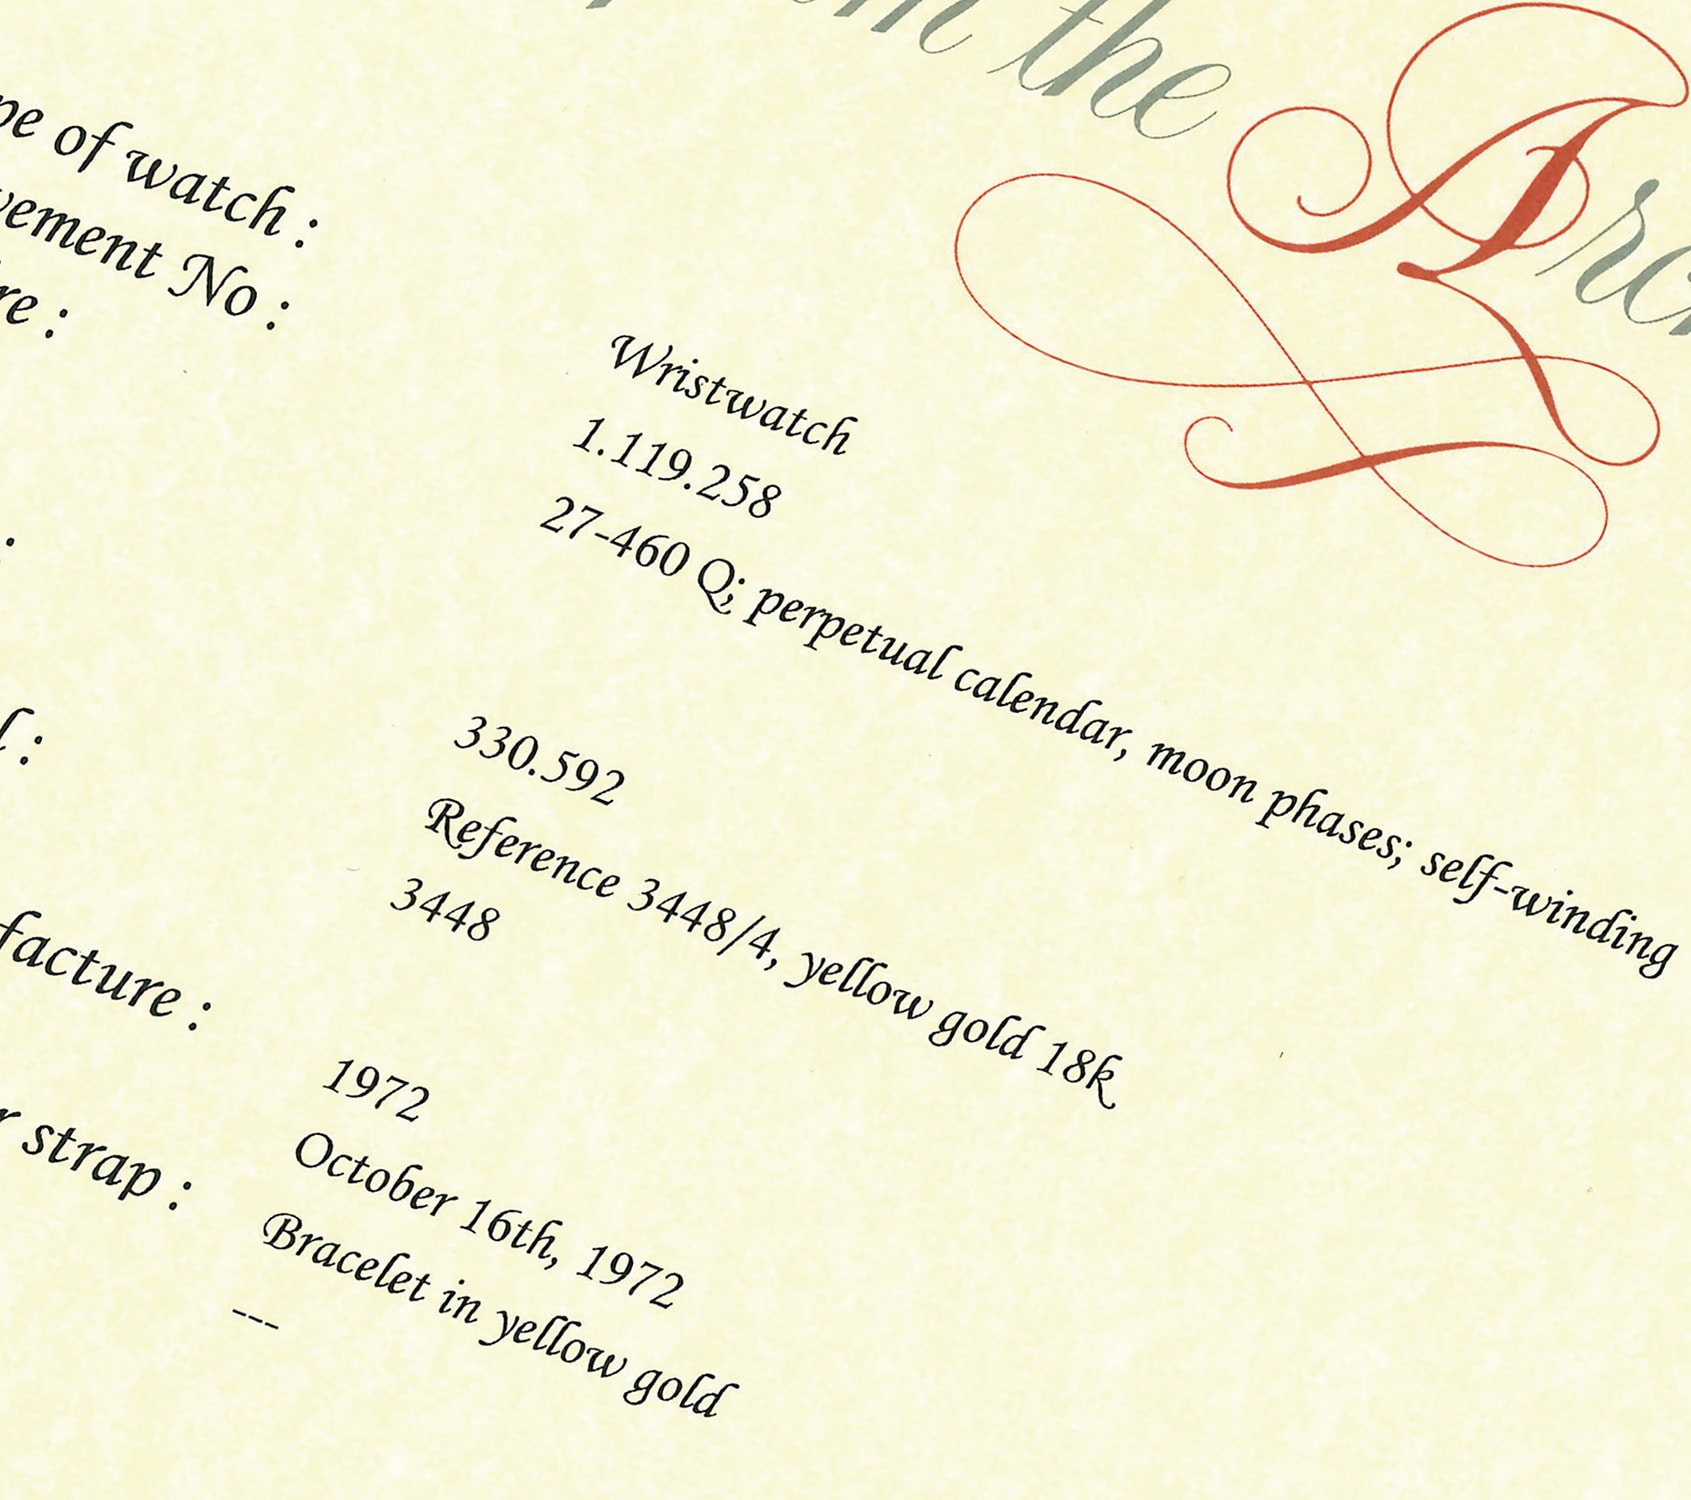 the
of watch :
No :
Wristwatch
1.119.258
27-460 Q; perpetual calendar, moon phases; self-winding
330.592
Reference 3448/4, yellow gold 18k
3448
1972
strap :
October 16th, 1972
Bracelet in yellow gold
---